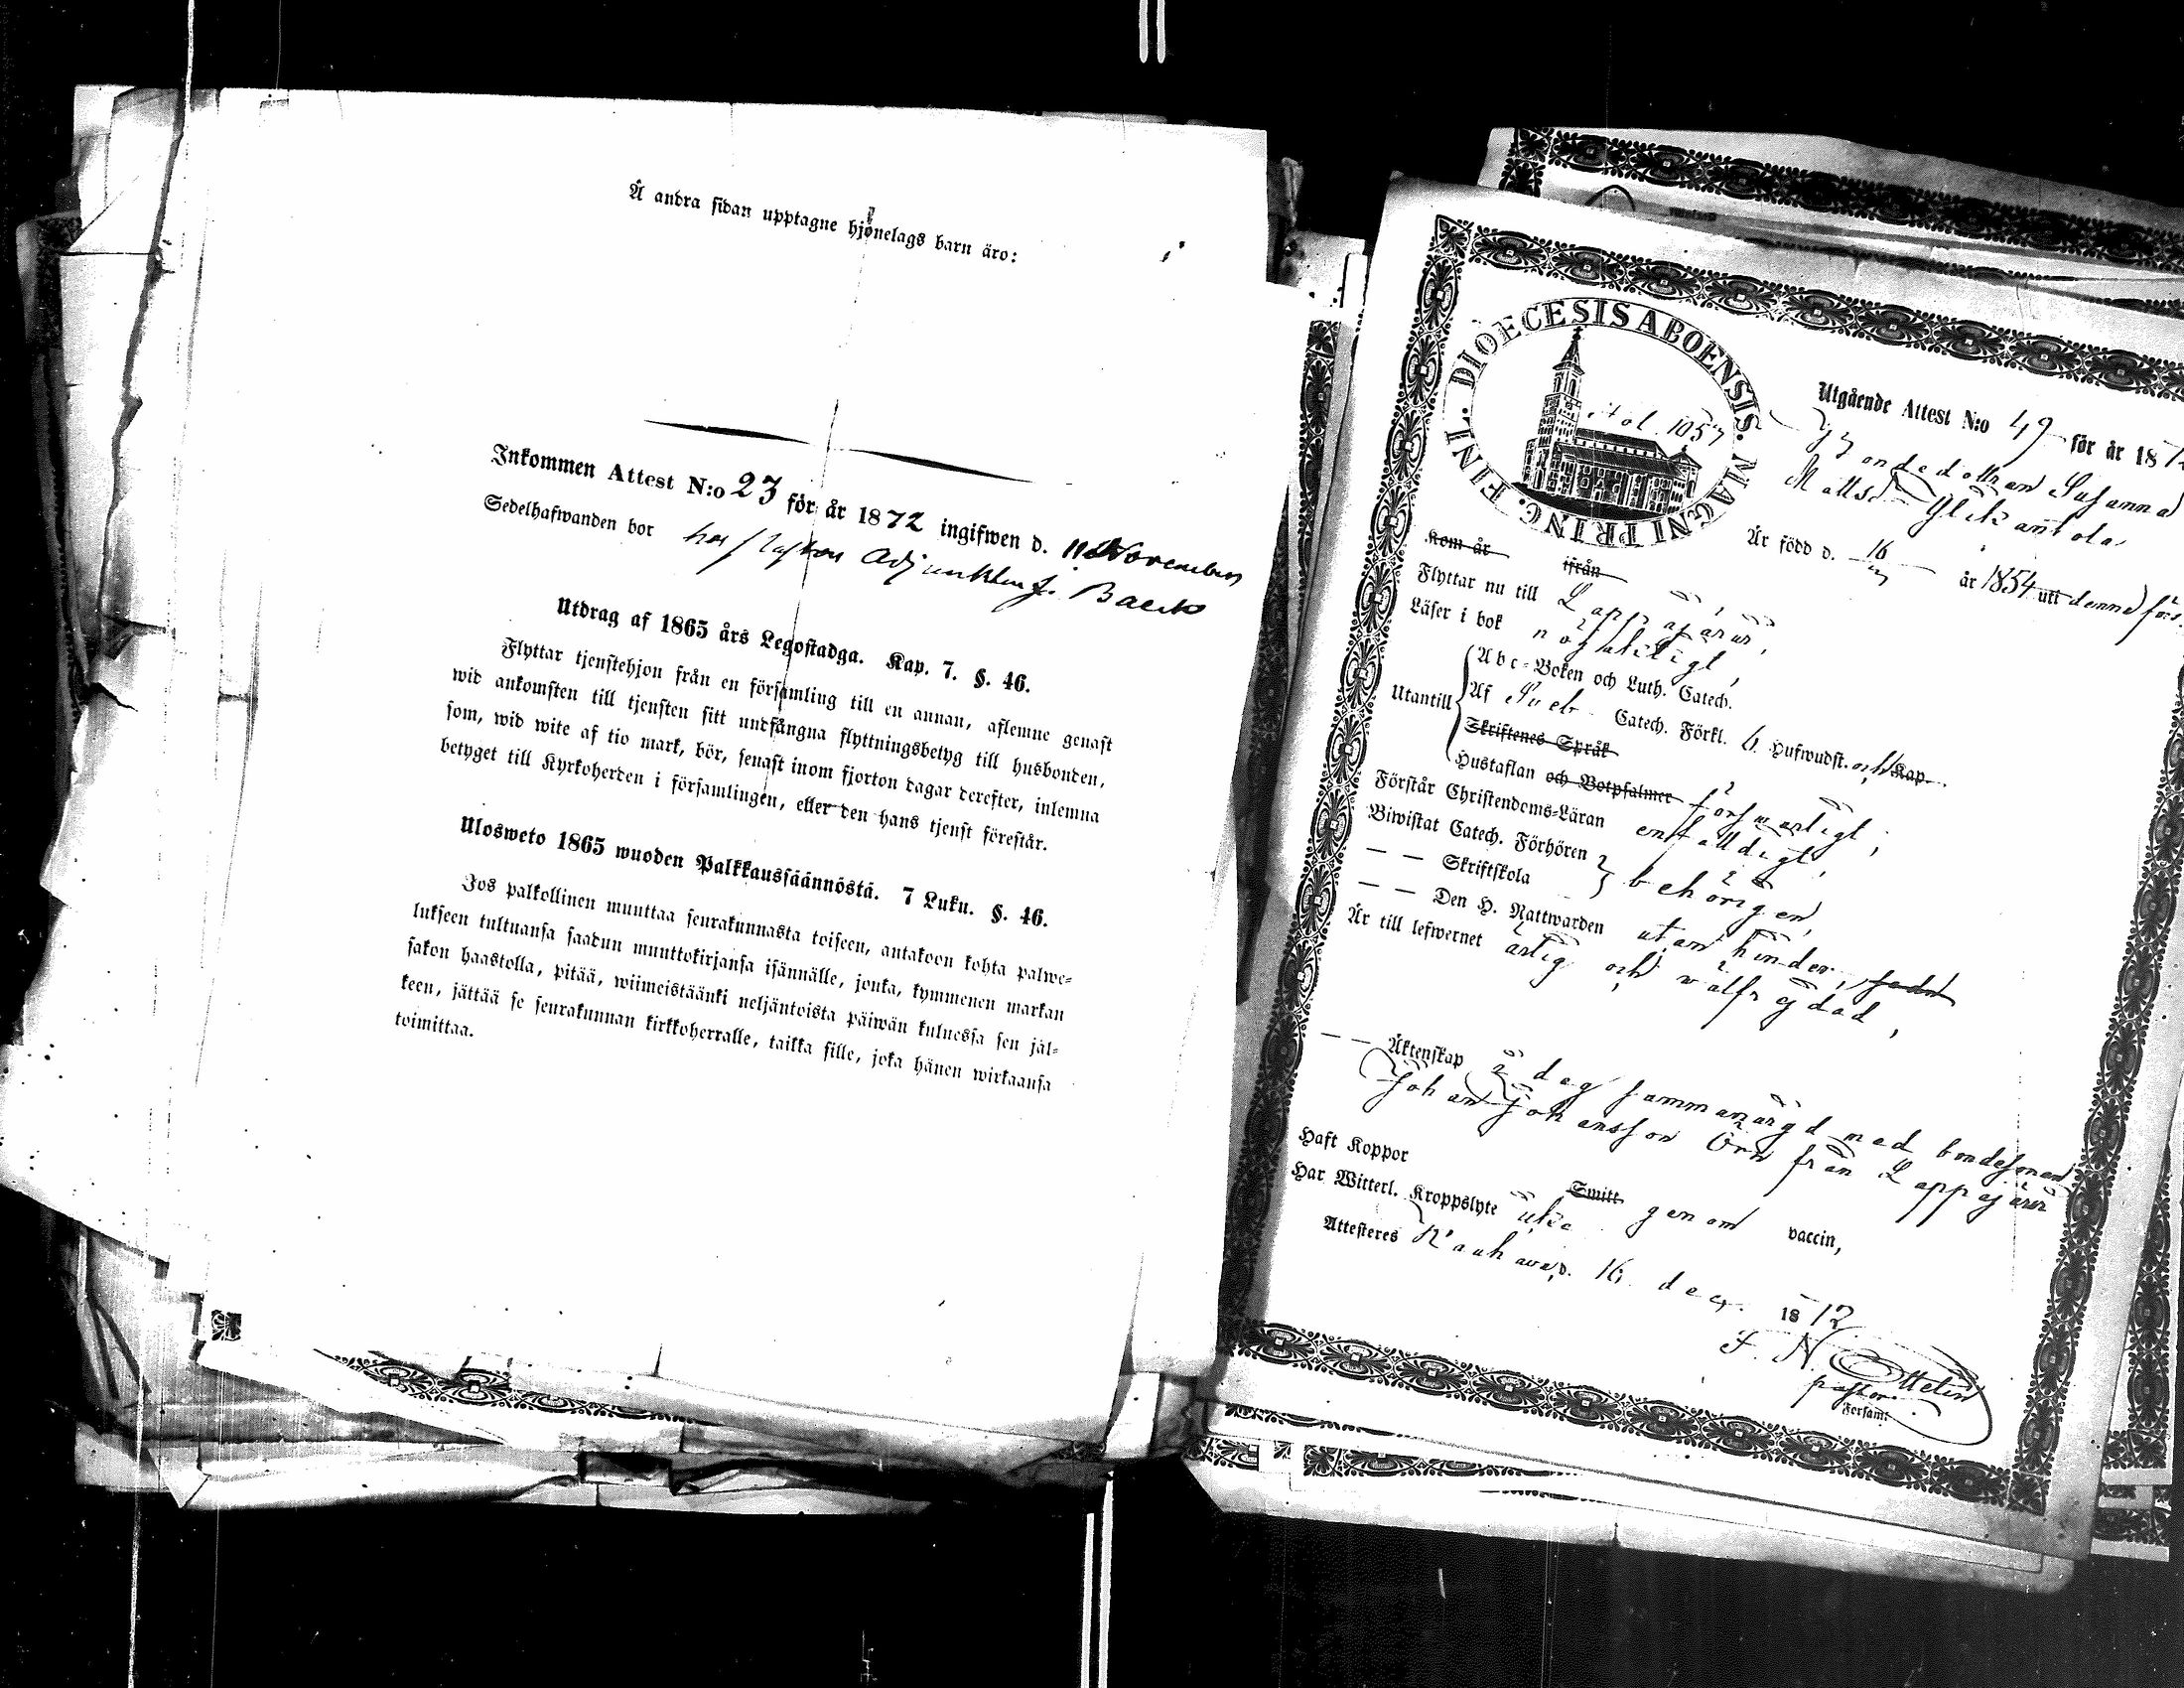 Å andra sidan upptagne hjonelags barn äro:
Inkommen Attest N:o 23 för år 1872 ingifwen d. 11 November
Sedelhafwanden bor hos Pastors Adjunkten J. Backo
Utdrag af 1865 års Legostadga. Kap. 7. §. 46.
Flyttar tjenstehjon från en församling till en annan, aflemne genast
wid ankomsten till tjensten sitt undfångna flyttningsbetyg till husbonden,
som, wid wite af tio mark, bör, senast inom fjorton dagar derefter, inlemna
betyget till Kyrkoherden i församlingen, eller den hans tjenst förestår.
Ulosweto 1865 wuoden Palkkaussäännöstä. 7 Luku. §. 46.
Jos palkollinen muuttaa seurakunnasta toiseen, antakoon kohta palwe-
lukseen tultuansa saadun muuttokirjansa isännälle, jonka, kymmenen markan
sakon haastolla, pitää, wiimeistäänki neljäntoista päiwän kuluessa sen jäl-
keen, jättää se seurakunnan kirkkoherralle, taikka sille, joka hänen wirkaansa
toimittaa.
DIOECESIS ABOENSIS. MAGNI PRINC. FINL.
Fol. 1057
Utgående Attest N:o 49 för år 1872
Bondedottren Susanna
Mattsd:r
År född d. 16 år 1854 uti denna förs.
Kom år ifrån
Flyttar nu till Lappajärvi,
Läser i bok nöjaktigt,
Utantill
Abc-Boken och Luth. Catech.
Af Sveb. Catech. Förkl. 6 Hufwudst. och Kap.
Skriftenes Språk
Hustaflan och Botpsalmer försvarligt;
Förstår Christendoms-Läran enfaldigt,
Biwistat Catech. Förhören
— — Skriftskola behörigen,
— — Den H. Nattwarden utan hinder,
Är till lefwernet ärlig och välfrejdad,
— — Äktenskap i dag sammanvigd med bondesonen
Johan Johansson Örn från Lappajärvi
Haft Koppor Smitt genom vaccin,
Har Witterl. Kroppslyte icke
Attesteres Kauhava, d. 16 dec. 1872
F. N. Ottelin
pastor
Församl.